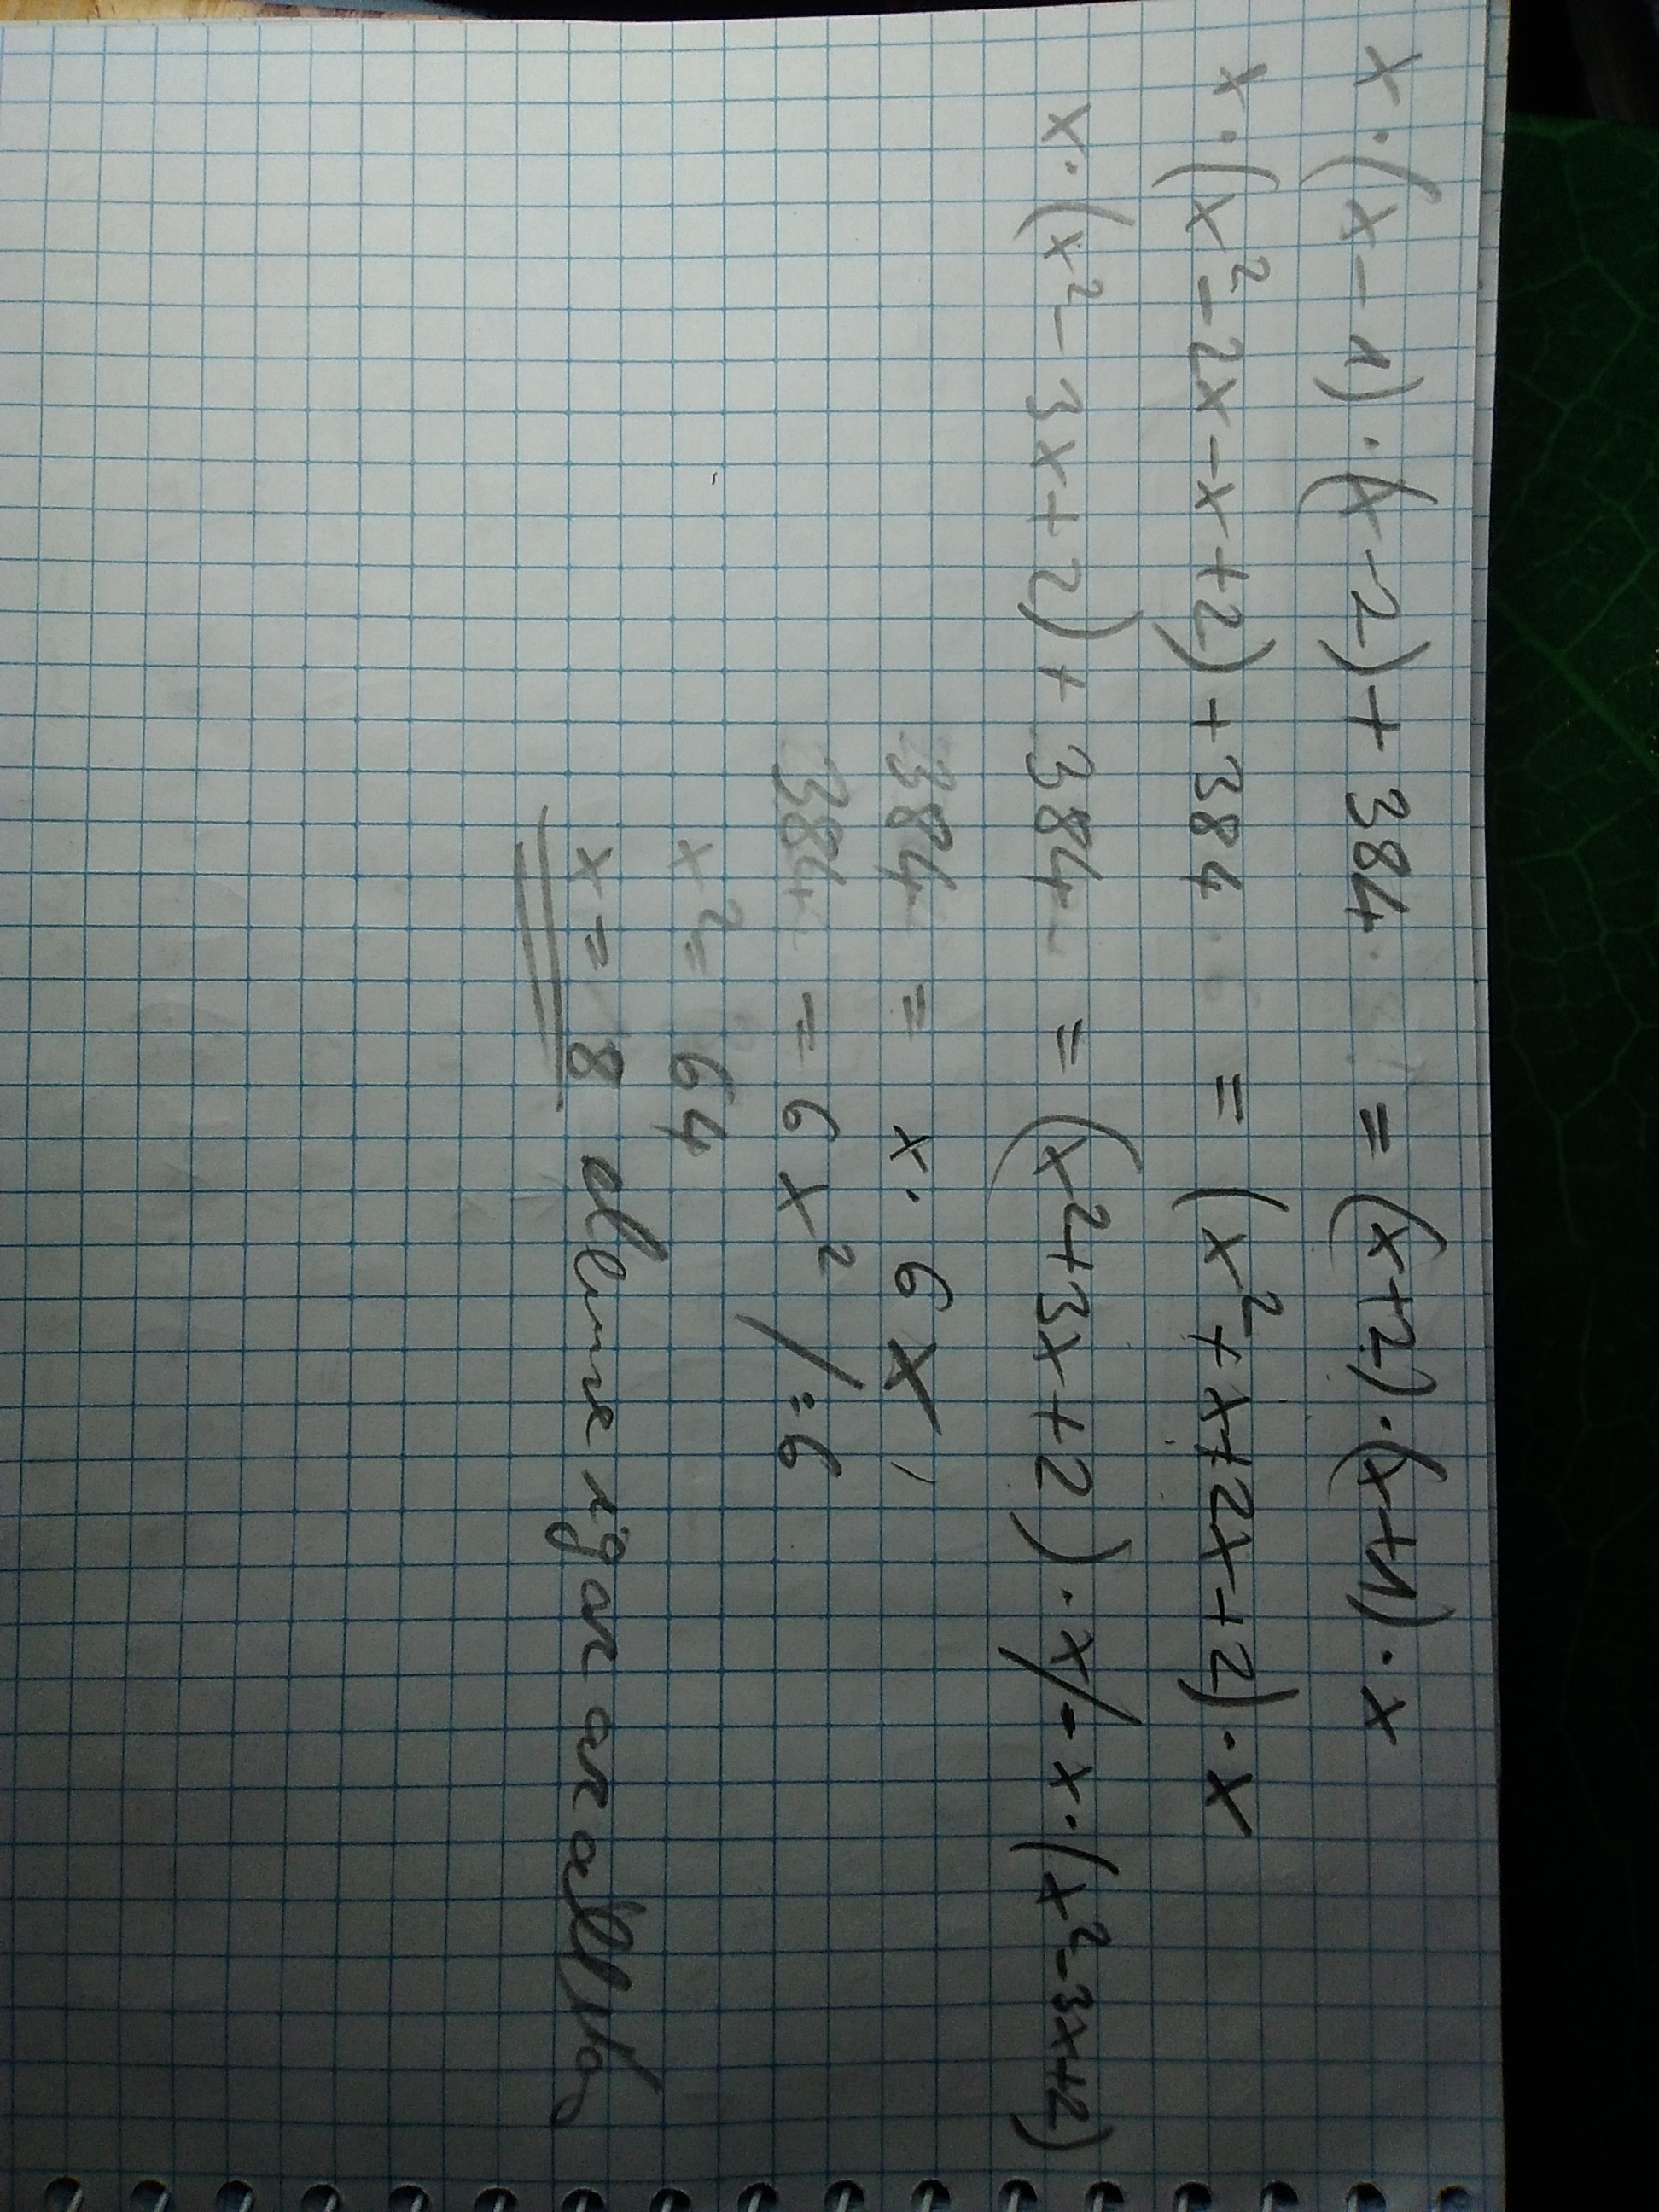 x·(x-1)·(x-2)+384 = (x+2)·(x+1)·x
x·(x²-2x-x+2)+384 = (x²+x+2x+2)·x
x·(x²-3x+2)+384 = (x²+3x+2)·x/-x·(x²-3x+2)
384 = x·6x
384 = 6x² /:6
x² = 64
x = 8 elvine igaz az állítás